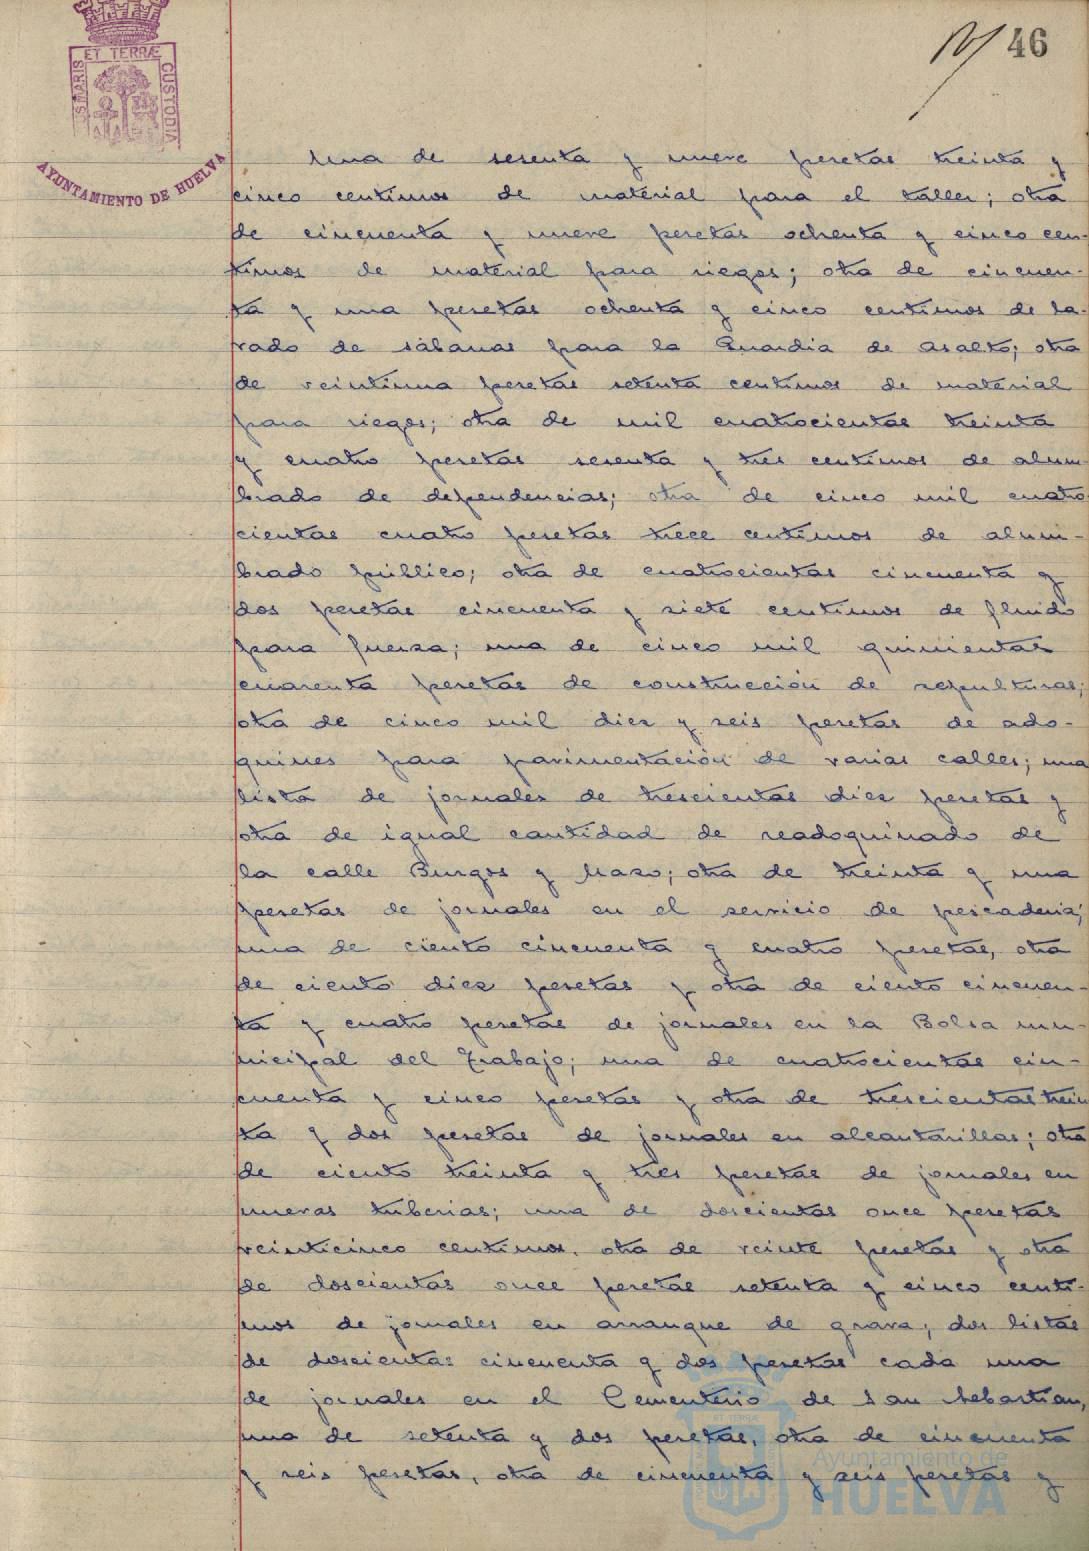 46
ET TERRÆ
S MARIS
CUSTODIA
AYUNTAMIENTO DE HUELVA
Una de sesenta y nueve pesetas treinta y
cinco centimos de material para el taller; otra
de cincuenta y nueve pesetas ochenta y cinco cen-
timos de material para riegos; otra de cincuen-
ta y una pesetas ochenta y cinco centimos de la-
vado de sábanas para la Guardia de asalto; otra
de veintiuna pesetas setenta centimos de material
para riegos; otra de mil cuatrocientas treinta
y cuatro pesetas sesenta y tres centimos de alum-
brado de dependencias; otra de cinco mil cuatro
cientas cuatro pesetas trece centimos de alum-
brado público; otra de cuatrocientas cincuenta y
dos pesetas cincuenta y siete centimos de fluido
para fuerza; una de cinco mil quinientas
cuarenta pesetas de construcción de sepulturas;
otra de cinco mil diez y seis pesetas de ado-
quines para pavimentación de varias calles; una
lista de jornales de trescientas diez pesetas y
otra de igual cantidad de readoquinado de
la calle Burgos y Mazo; otra de treinta y una
pesetas de jornales en el servicio de pescaderia;
una de ciento cincuenta y cuatro pesetas, otra
de ciento diez pesetas y otra de ciento cincuen-
ta y cuatro pesetas de jornales en la Bolsa mu-
nicipal del Trabajo; una de cuatrocientas cin-
cuenta y cinco pesetas y otra de trescientas trein
ta y dos pesetas de jornales en alcantarillas; otra
de ciento treinta y tres pesetas de jornales en
nuevas tuberias; una de doscientas once pesetas
veinticinco centimos, otra de veinte pesetas y otra
de doscientas once pesetas setenta y cinco centi-
mos de jornales en arranque de grava; dos listas
de doscientas cincuenta y dos pesetas cada una
de jornales en el Cementerio de San Sebastian,
una de setenta y dos pesetas, otra de cincuenta
y seis pesetas, otra de cincuenta y seis pesetas y
Ayuntamiento de
HUELVA